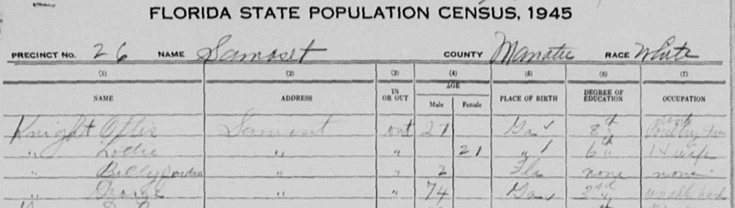 FLORIDA STATE POPULATION CENSUS, 1945
PRECINCT NO. 26 NAME Samoset COUNTY Manatee RACE White
(1) (2) (3) (4) (5) (6) (7)
NAME ADDRESS IN OR OUT AGE Male Female PLACE OF BIRTH DEGREE OF EDUCATION OCCUPATION
Knight Otlis Samoset out 27 Ga 8th
" " " 21 " 6th H wife
" Billy " " 2 Fla none none
" George " " 74 Ga 3rd unable work